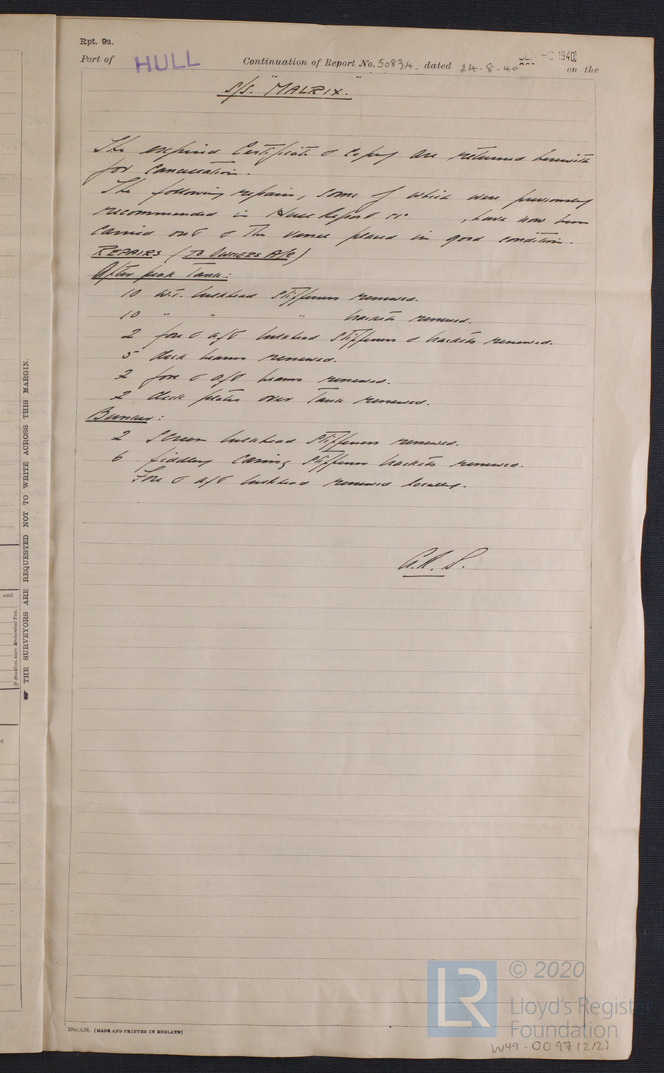 Rpt. 9a.
Port of HULL Continuation of Report No. 50834. dated 24-8-40 on the
1940
S/S. "MALRIX".
The expired Certificate & Copy are returned herewith
for cancellation.
The following repairs, some of which were previously
recommended in Hull Report No , have now been
carried out & the vessel placed in good condition.
REPAIRS (TO OWNERS A/C)
After peak Tank:
10 W.T. bulkhead stiffeners renewed.
10 " " brackets renewed.
2 fore & aft bulkhead stiffeners & brackets renewed.
5 deck beams renewed.
2 fore & aft beams renewed.
2 deck plates over Tank renewed.
Bunker:
2 Screen bulkhead stiffeners renewed.
6 fiddley casing stiffener brackets renewed.
Fore & aft bulkhead renewed locally.
THE SURVEYORS ARE REQUESTED NOT TO WRITE ACROSS THIS MARGIN.
and
(MADE AND PRINTED IN ENGLAND)
LR
© 2020
Lloyd's Register
Foundation
W49-0097(2/2)